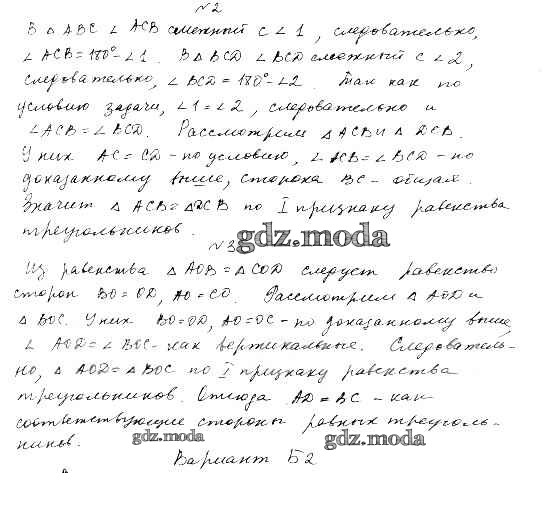 №2
В △ ABC ∠ ACB смежный с ∠1, следовательно,
∠ ACB = 180° - ∠1. В △ BCD ∠ BCD смежный с ∠2,
следовательно, ∠ BCD = 180° - ∠2. Так как по
условию задачи, ∠1 = ∠2, следовательно и
∠ACB = ∠BCD. Рассмотрим △ ACB и △ DCB.
У них AC = CD - по условию, ∠ ACB = ∠ BCD - по
доказанному выше, сторона BC - общая.
Значит △ ACB = △DCB по I признаку равенства
треугольников.
№3
gdz.moda
Из равенства △ AOB = △ COD следует равенство
сторон BO = OD, AO = CO. Рассмотрим △ AOD и
△ BOC. У них BO = OD, AO = OC - по доказанному выше,
∠ AOD = ∠ BOC - как вертикальные. Следователь-
но, △ AOD = △ BOC по I признаку равенства
треугольников. Отсюда AD = BC - как
соответствующие стороны равных треуголь-
ников.
gdz.moda
gdz.moda
Вариант Б2